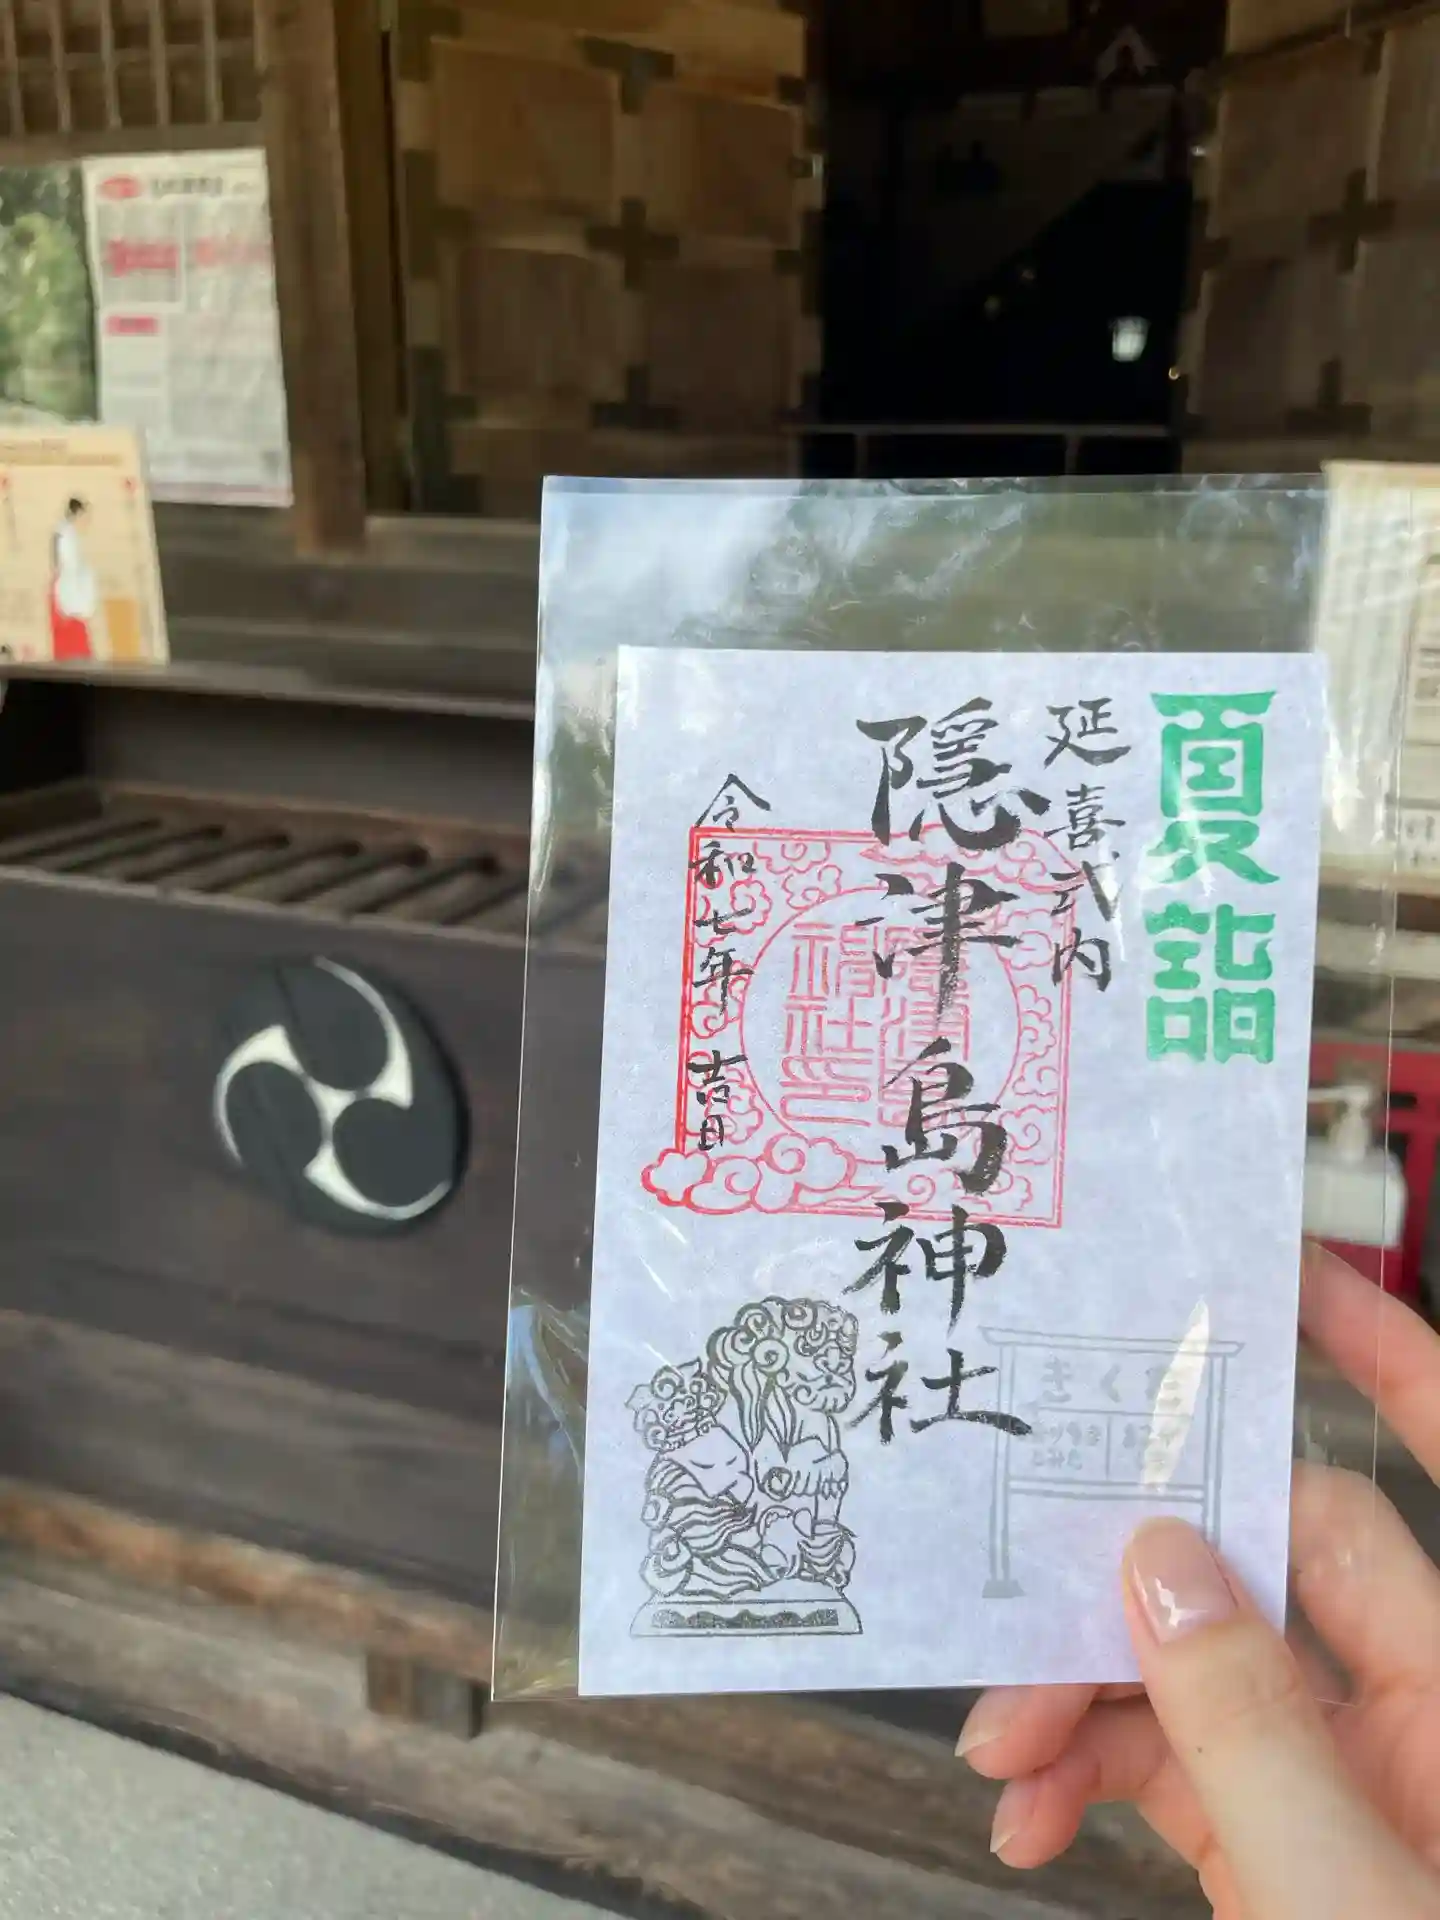 夏詣
延喜式内
隠津島神社
令和七年 吉日
隠津島
神社印
きくた